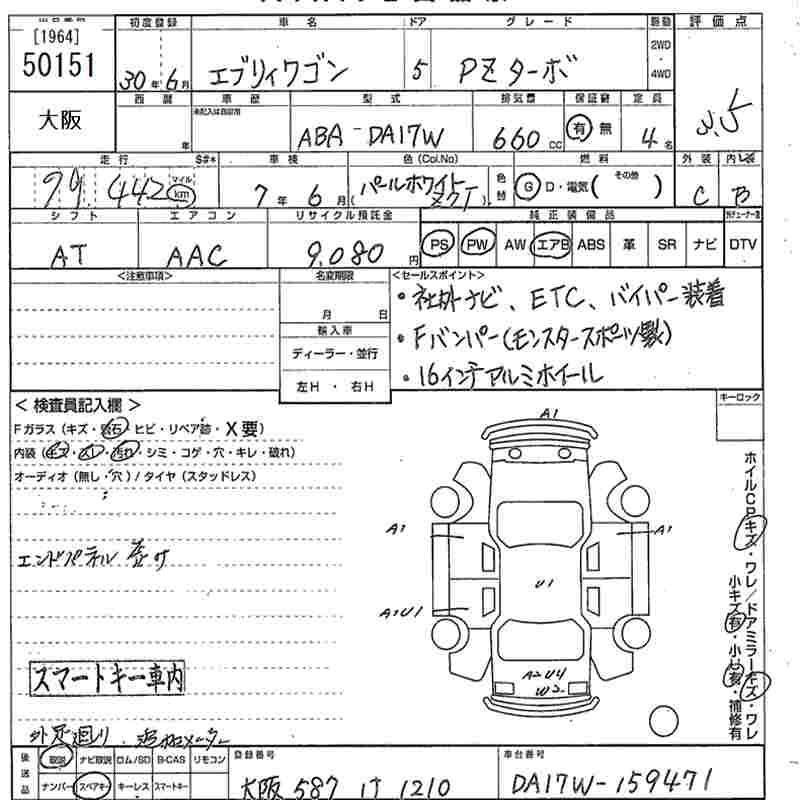 [1964]
50151
大阪
初度登録
30年6月
車名
エブリィワゴン
ドア
5
グレード
PZターボ
駆動
2WD
・
4WD
評価点
3.5
西暦
年
車歴
未記入は自家用
型式
ABA-DA17W
排気量
660cc
保証書
有 無
定員
4名
走行
99,442
マイル
km
S#*
車検
7年6月
色(Col.No)
(パールホワイト
)
色替
燃料
G D・電気( その他 )
外装
C
内装
B
シフト
AT
エアコン
AAC
リサイクル預託金
9,080円
純正装備品
PS PW AW エアB ABS 革 SR ナビ DTV
<注意事項>
名変期限
月 日
輸入車
ディーラー・並行
左H ・ 右H
<セールスポイント>
・社外ナビ、ETC、バイパー装着
・Fバンパー(モンスタースポーツ製)
・16インチアルミホイール
キーロック
<検査員記入欄>
Fガラス(キズ・飛石・ヒビ・リペア跡・X要)
内装(キズ・スレ・汚れ・シミ・コゲ・穴・キレ・破れ)
オーディオ(無し・穴)/タイヤ(スタッドレス)
エンドパネル
スマートキー車内
追加メーター
A1
A1
A1
A2U1
U1
A2U4
W2
ホイルCPキズ・ワレ/ドアミラーキズ・ワレ
小キズ有・小凹有・補修有
後送品
取説 ナビ取説 ロム/SD B-CAS リモコン
ナンバー スペアキー キーレス スマートキー
登録番号
大阪 587 け 1210
車台番号
DA17W-159471